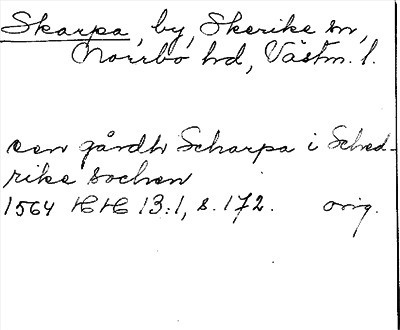 Skarpa, by, Skerike sn,
Norrbo hd, Västm. l.
een gårdh Scharpa i Sched-
rike sochen
1564 HH 13:1, s. 172. orig.